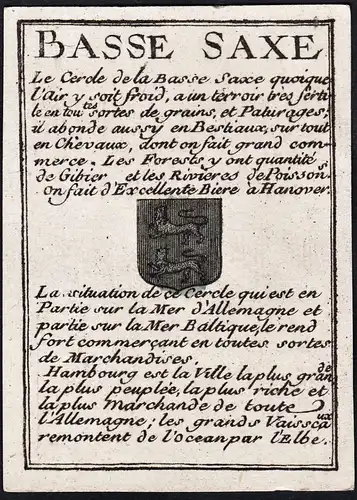 BASSE SAXE
Le Cercle de la Basse Saxe quoique
l'Air y soit froid, a un terroir tres ferti
le en toutes sortes de grains, et Paturages;
il abonde aussy en Bestiaux, sur tout
en Chevaux, dont on fait grand com-
merce. Les Forests y ont quantité
de Gibier et les Rivieres de Poissons
on fait d'Excellente Biere à Hanover.
La situation de ce Cercle qui est en
Partie sur la Mer d'Allemagne et
partie sur la Mer Baltique, le rend
fort commerçant en toutes sortes
de Marchandises.
Hambourg est la Ville la plus grande
la plus peuplée, la plus riche et
la plus Marchande de toute
l'Allemagne; les grands Vaisseaux
remontent de l'ocean par l'Elbe.